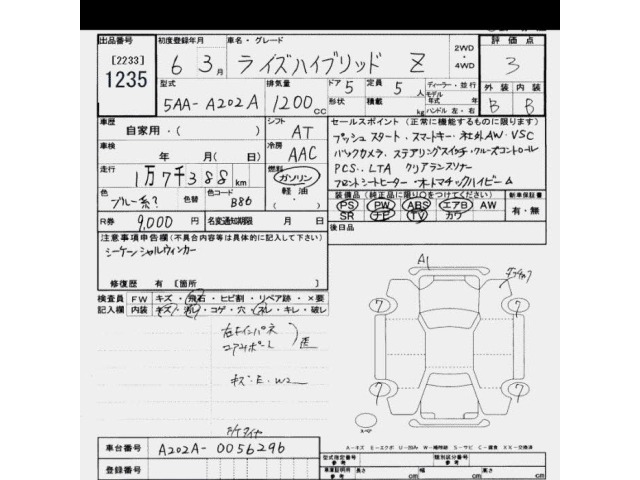 出品番号 初度登録年月 車名・グレード 2WD 評価点
[2233] 6 3月 ライズハイブリッド Z ・4WD 3
1235 型式 排気量 ドア 5 定員 5人 ディーラー・並行 外装 内装
5AA-A202A 1200cc 形状 積載 kg モデル年式 年式 ハンドル 左・右 B B
車歴 自家用・( ) シフト AT セールスポイント (正常に機能するものに限ります)
車検 年 月(日) 冷房 AAC プッシュスタート・スマートキー・社外AW・VSC
バックカメラ、ステアリングスイッチ・クルーズコントロール
走行 1万7千388km 燃料 ガソリン PCS、LTA クリアランスソナー
軽油 フロントシートヒーター・オートマチックハイビーム
色 ブルー系? 色替 色コード B86 装備品 (純正品に限り○をつけてください) 新車保証書
PS PW ABS エアB AW 有・無
R券 9,000円 名変通知期限 月 日 SR ナビ TV カワ
注意事項申告欄(不具合内容等は具体的に記入して下さい) 後日品
シーケンシャルウィンカー
修復歴 有 [箇所 ] A1
検査員 FW キズ・飛石・ヒビ割・リペア跡・×要
記入欄 内装 キズ・汚レ・コゲ・穴・スレ・キレ・破レ
7 7
キズ・E・W2
7 7
スペア
A-キズ E-エクボ
車台番号 A202A-0056296 型式指定番号 参考 類別区分番号 参考
登録番号 車車証明用 参考 長さ cm 幅 cm 高さ cm